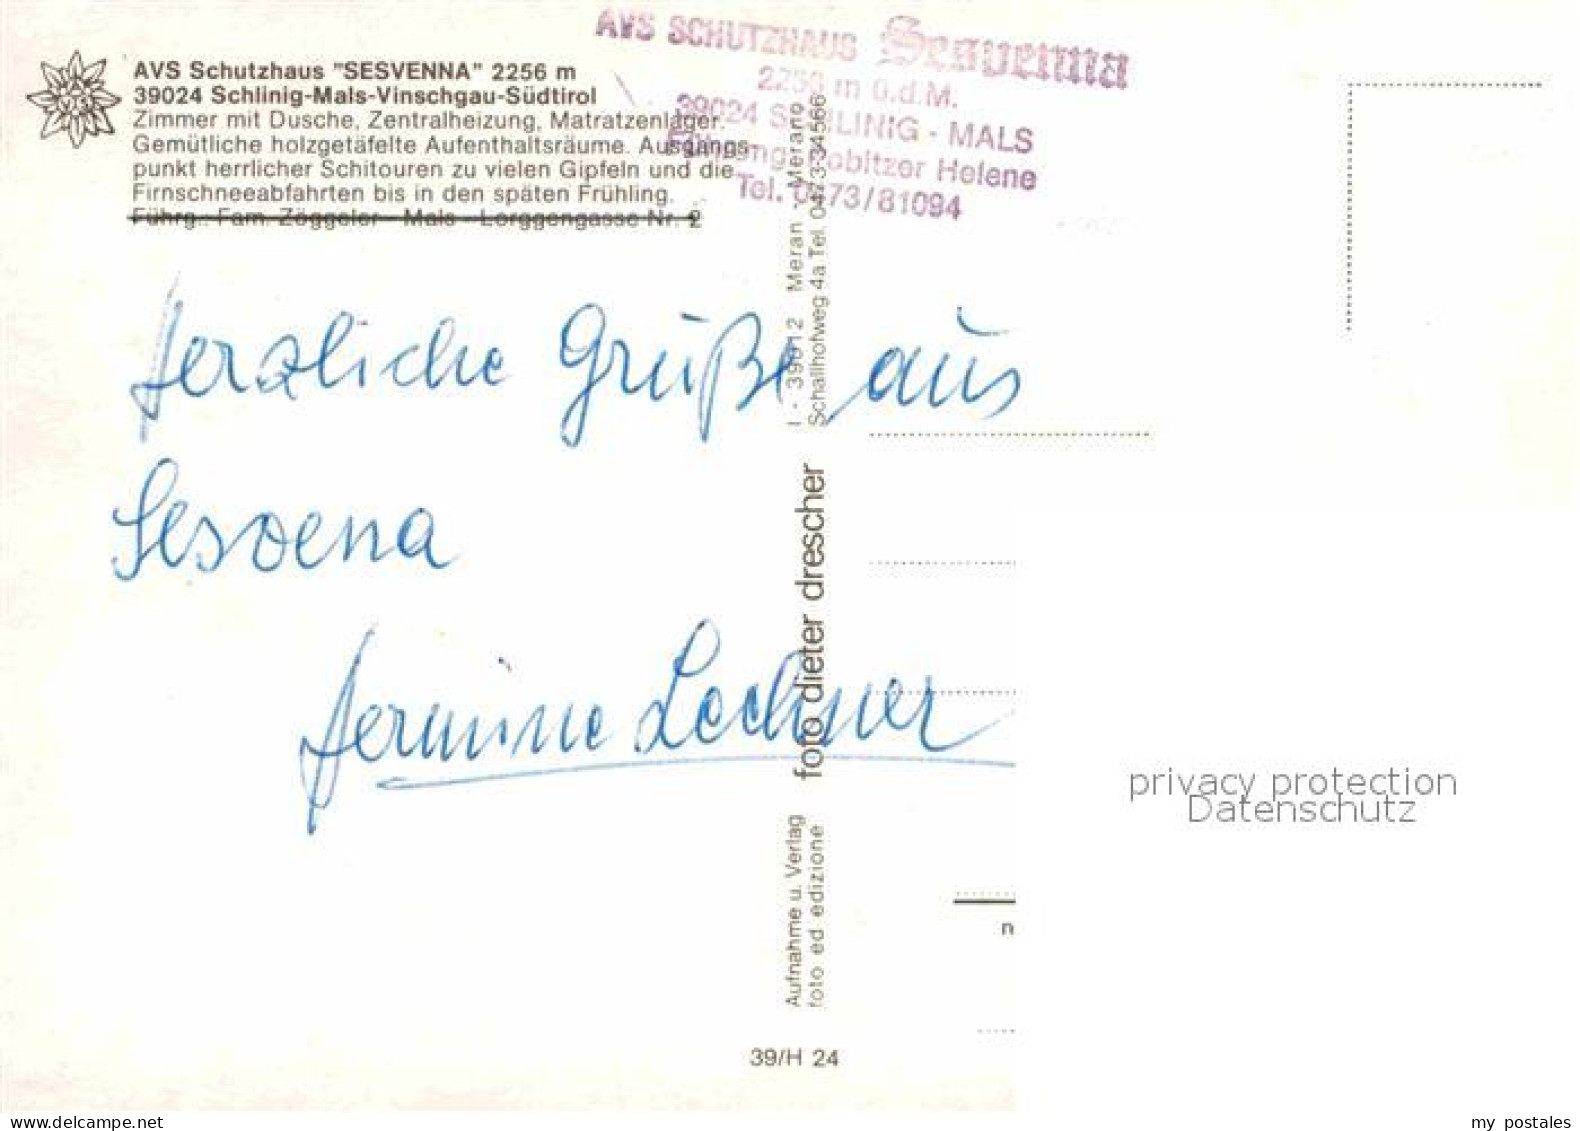 AVS Schutzhaus "SESVENNA" 2256 m
39024 Schlinig-Mals-Vinschgau-Südtirol
Zimmer mit Dusche, Zentralheizung, Matratzenlager.
Gemütliche holzgetäfelte Aufenthaltsräume. Ausgangs-
punkt herrlicher Schitouren zu vielen Gipfeln und die
Firnschneeabfahrten bis in den späten Frühling.
Führg.: Fam. Zöggeler - Mals - Lorggengasse Nr. 2
AVS
AVS SCHUTZHAUS Sesvenna
2256 m ü.d.M.
39024 SCHLINIG - MALS
Pobitzer Helene
Tel. 0473/81094
Herzliche Grüße aus
Sesvena
Hermine Lechner
I - 39012 Meran - Merano
Schallhofweg 4a Tel. 0473-34566
foto dieter drescher
Aufnahme u. Verlag
foto ed edizione
39/H 24
n
privacy protection
Datenschutz
www.delcampe.net
my postales